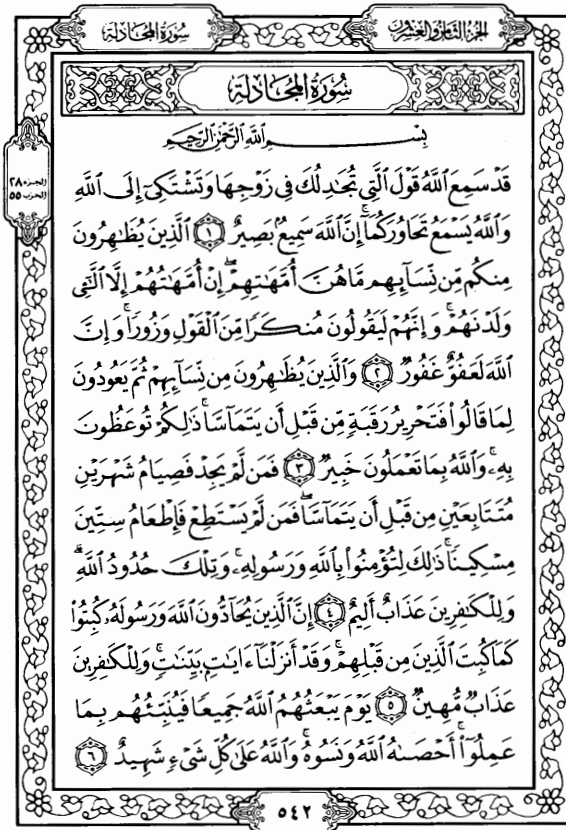 سُورَةُ المُجَادلَة
الجُزءُ الثَّامِنُ وَالعِشْرُون
سُورَةُ المُجَادلَة
الجزء ٢٨
الحزب ٥٥
بِسْمِ ٱللَّهِ ٱلرَّحْمَٰنِ ٱلرَّحِيمِ
قَدْ سَمِعَ ٱللَّهُ قَوْلَ ٱلَّتِى تُجَٰدِلُكَ فِى زَوْجِهَا وَتَشْتَكِىٓ إِلَى ٱللَّهِ
وَٱللَّهُ يَسْمَعُ تَحَاوُرَكُمَآ ۚ إِنَّ ٱللَّهَ سَمِيعٌۢ بَصِيرٌ ۝١ ٱلَّذِينَ يُظَٰهِرُونَ
مِنكُم مِّن نِّسَآئِهِم مَّا هُنَّ أُمَّهَٰتِهِمْ ۖ إِنْ أُمَّهَٰتُهُمْ إِلَّا ٱلَّٰٓـِٔى
وَلَدْنَهُمْ ۚ وَإِنَّهُمْ لَيَقُولُونَ مُنكَرًا مِّنَ ٱلْقَوْلِ وَزُورًا ۚ وَإِنَّ
ٱللَّهَ لَعَفُوٌّ غَفُورٌ ۝٢ وَٱلَّذِينَ يُظَٰهِرُونَ مِن نِّسَآئِهِمْ ثُمَّ يَعُودُونَ
لِمَا قَالُوا۟ فَتَحْرِيرُ رَقَبَةٍ مِّن قَبْلِ أَن يَتَمَآسَّا ۚ ذَٰلِكُمْ تُوعَظُونَ
بِهِۦ ۚ وَٱللَّهُ بِمَا تَعْمَلُونَ خَبِيرٌ ۝٣ فَمَن لَّمْ يَجِدْ فَصِيَامُ شَهْرَيْنِ
مُتَتَابِعَيْنِ مِن قَبْلِ أَن يَتَمَآسَّا ۖ فَمَن لَّمْ يَسْتَطِعْ فَإِطْعَامُ سِتِّينَ
مِسْكِينًا ۚ ذَٰلِكَ لِتُؤْمِنُوا۟ بِٱللَّهِ وَرَسُولِهِۦ ۚ وَتِلْكَ حُدُودُ ٱللَّهِ ۗ
وَلِلْكَٰفِرِينَ عَذَابٌ أَلِيمٌ ۝٤ إِنَّ ٱلَّذِينَ يُحَآدُّونَ ٱللَّهَ وَرَسُولَهُۥ كُبِتُوا۟
كَمَا كُبِتَ ٱلَّذِينَ مِن قَبْلِهِمْ ۚ وَقَدْ أَنزَلْنَآ ءَايَٰتٍۭ بَيِّنَٰتٍ ۚ وَلِلْكَٰفِرِينَ
عَذَابٌ مُّهِينٌ ۝٥ يَوْمَ يَبْعَثُهُمُ ٱللَّهُ جَمِيعًا فَيُنَبِّئُهُم بِمَا
عَمِلُوٓا۟ ۚ أَحْصَىٰهُ ٱللَّهُ وَنَسُوهُ ۚ وَٱللَّهُ عَلَىٰ كُلِّ شَىْءٍ شَهِيدٌ ۝٦
٥٤٢